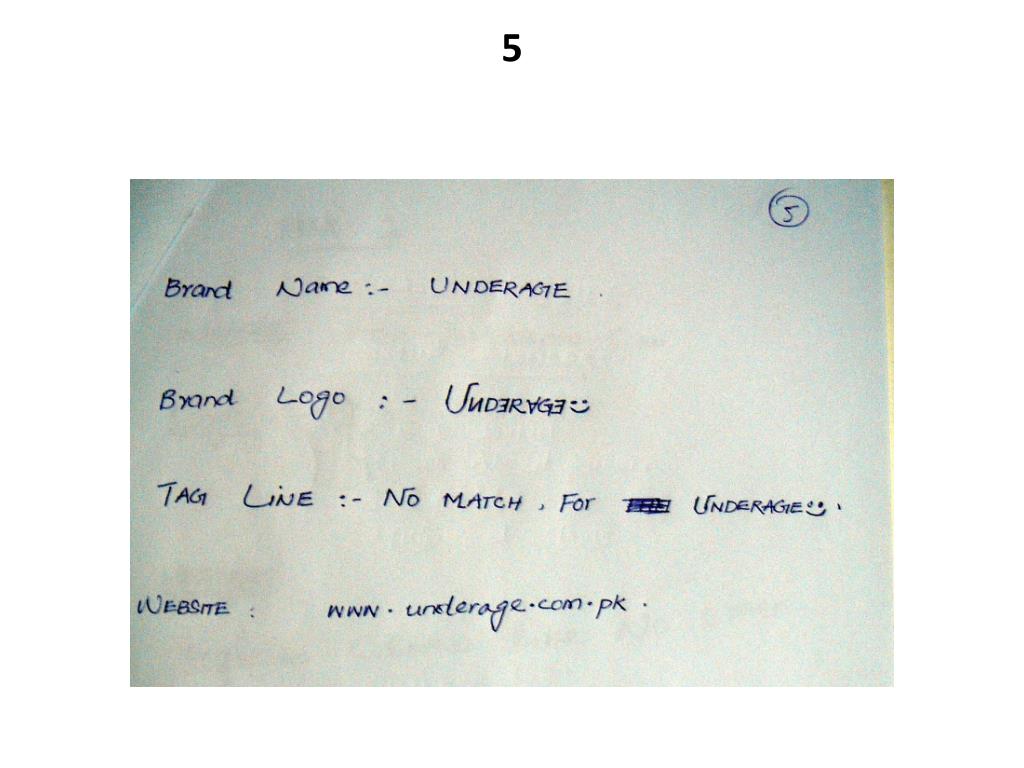 5
5
Brand Name :- UNDERAGE .
Brand Logo :- UNDERAGE
TAG LINE :- NO MATCH, FOR UNDERAGE.
WEBSITE : www.underage.com.pk .